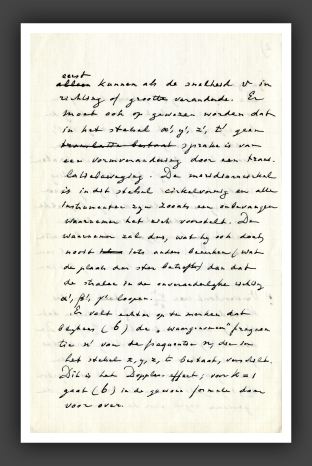 eerst
kunnen als de snelheid v in
richting of grootte veranderde. Er
moet ook op gewezen worden dat
in het stelsel x', y', z', t' geen
sprake is van
een vormverandering door een trans
latiebeweging. De meridiaancirkel
is in dit stelsel cirkelvormig en alle
instrumenten zijn zooals een ontvanger
waarnemer het zich voorstelt. De
waarnemer zal dus, wat hij ook doet,
nooit iets anders bemerken (wat
de plaats der ster betreft) dan dat
de stralen in de onveranderlijke richting
α', β', γ' loopen.
Er valt echter op te merken dat
(6) de „waargenomen" frequen
tie n' van de frequentie n, die in
het stelsel x, y, z, t bestaat, verschilt.
Dit is het Doppler-effect; voor k = 1
gaat (6) in de gewone formule daar
voor over.